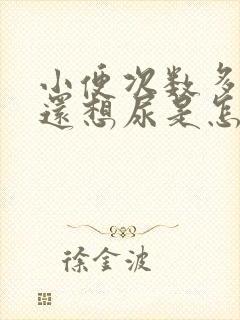 小便次数多
還想尿是怎
徐金波